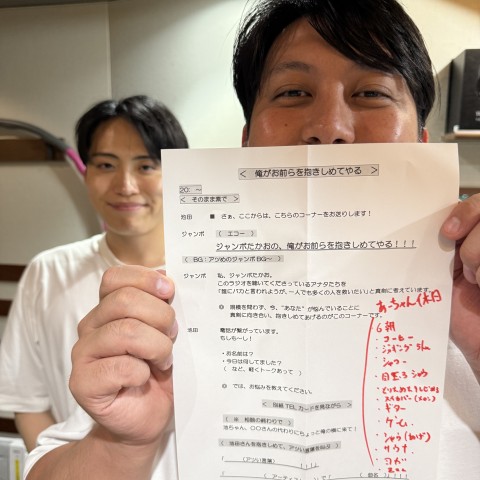 ＜ 俺がお前らを抱きしめてやる ＞
20: ～
＜ そのまま素で ＞
池田 ■ さぁ、ここからは、こちらのコーナーをお送りします！
ジャンボ （ エコー ）
ジャンボたかおの、俺がお前らを抱きしめてやる！！！
（ BG：アツめのジャンボBG～ ）
ジャンボ 私、ジャンボたかお。
このラジオを聴いてくださっているアナタたちを
「誰にバカと言われようが、一人でも多くの人を救いたい」と真剣に考えています。
真剣に向き合い、抱きしめてあげるのがこのコーナーです。
池田 電話が繋がっています。
もしもーし！
・お名前は？
・今日は何してました？
（ など、軽くトークあって ）
では、お悩みを教えてください。
（ ※ 相談の終わりで ）
池ちゃん、〇〇さんの代わりにちょっと俺の横に来て！
（ 池田さんを抱きしめて、アツい言葉をNJS ）
（アツい言葉）
あっちゃん休日
6朝
・コーヒー
・シャワー
・ギター
・ゲーム
・サウナ
・ヨガ